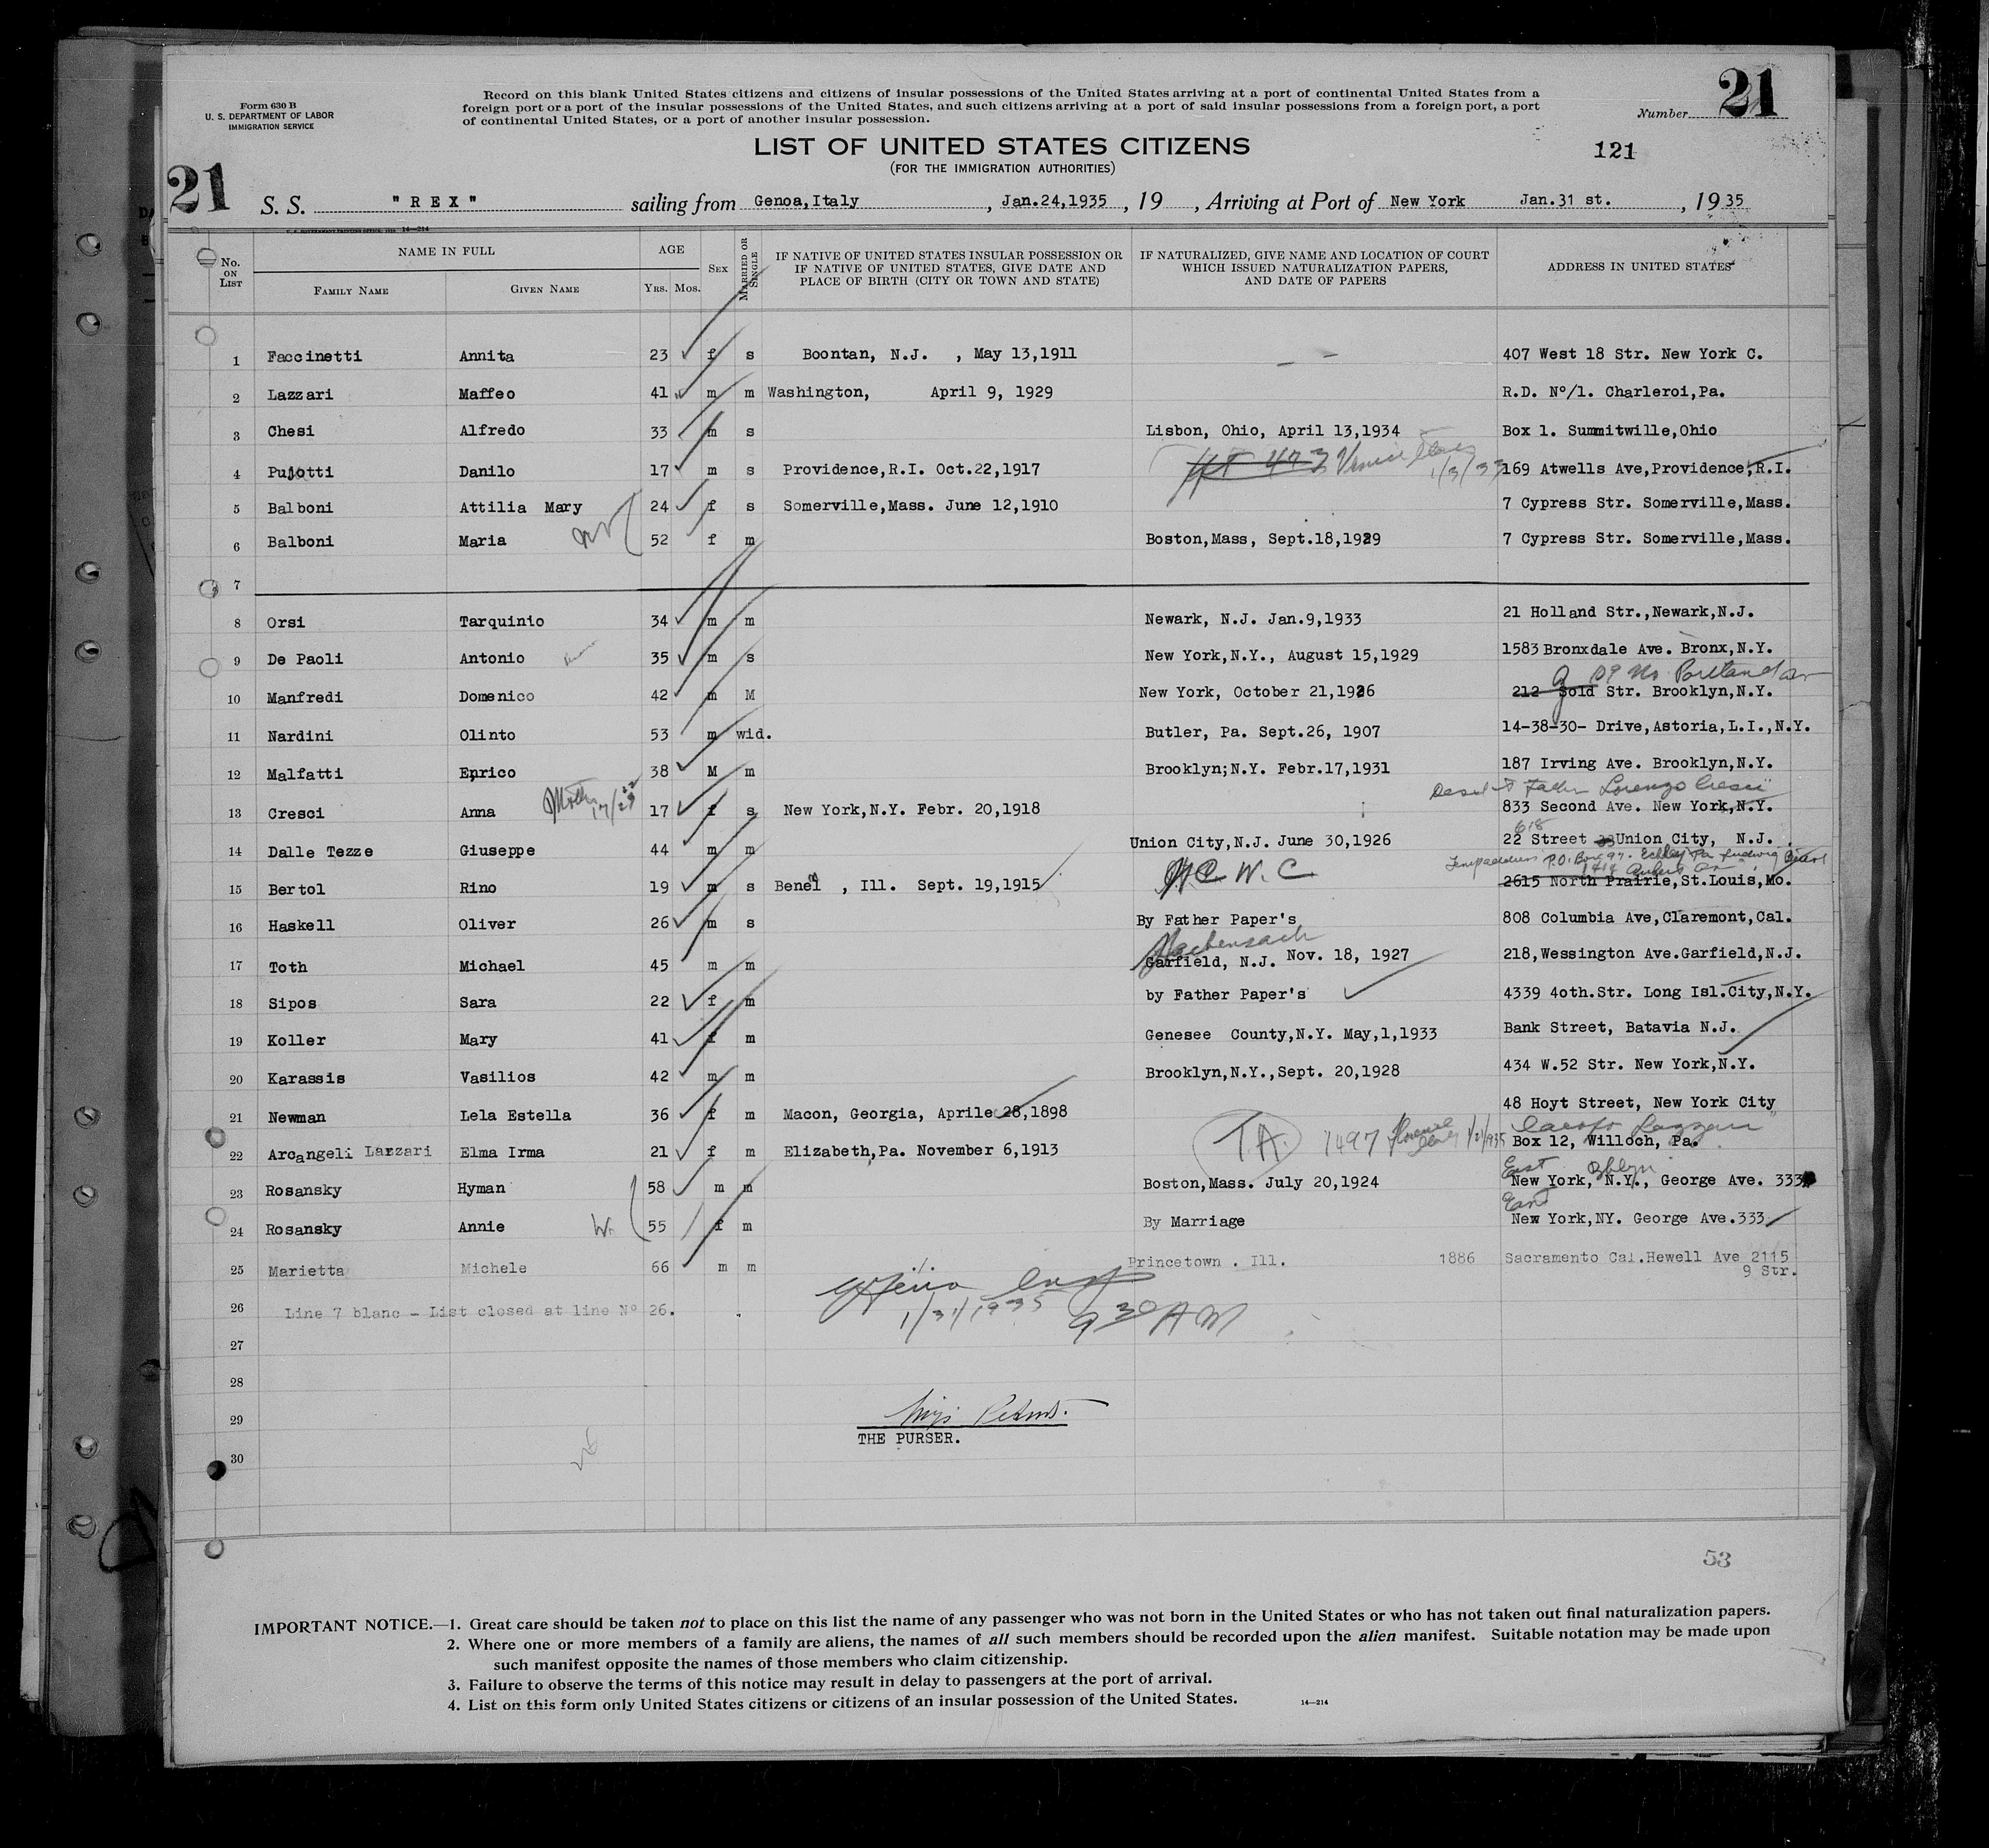 Form 630 B
U. S. DEPARTMENT OF LABOR
IMMIGRATION SERVICE
Record on this blank United States citizens and citizens of insular possessions of the United States arriving at a port of continental United States from a
foreign port or a port of the insular possessions of the United States, and such citizens arriving at a port of said insular possessions from a foreign port, a port
of continental United States, or a port of another insular possession.
Number 21
LIST OF UNITED STATES CITIZENS
(FOR THE IMMIGRATION AUTHORITIES)
121
21
S. S. "REX" sailing from Genoa,Italy , Jan.24,1935 , 19 , Arriving at Port of New York Jan.31 st. , 1935
No. ON LIST
NAME IN FULL
FAMILY NAME GIVEN NAME
AGE
YRS. MOS.
SEX
MARRIED OR SINGLE
IF NATIVE OF UNITED STATES INSULAR POSSESSION OR
IF NATIVE OF UNITED STATES, GIVE DATE AND
PLACE OF BIRTH (CITY OR TOWN AND STATE)
IF NATURALIZED, GIVE NAME AND LOCATION OF COURT
WHICH ISSUED NATURALIZATION PAPERS,
AND DATE OF PAPERS
ADDRESS IN UNITED STATES
1 Faccinetti Annita 23 f s Boontan, N.J. , May 13,1911 — — 407 West 18 Str. New York C.
2 Lazzari Maffeo 41 m m Washington, April 9, 1929 R.D. Nº/1. Charleroi,Pa.
3 Chesi Alfredo 33 m s Lisbon, Ohio, April 13,1934 Box 1. Summitwille,Ohio
4 Pujotti Danilo 17 m s Providence,R.I. Oct.22,1917 Venice 1/3/33 169 Atwells Ave,Providence,R.I.
5 Balboni Attilia Mary 24 f s Somerville,Mass. June 12,1910 7 Cypress Str. Somerville,Mass.
6 Balboni Maria 52 f m Boston,Mass, Sept.18,1929 7 Cypress Str. Somerville,Mass.
7
8 Orsi Tarquinio 34 m m Newark, N.J. Jan.9,1933 21 Holland Str.,Newark,N.J.
9 De Paoli Antonio 35 m s New York,N.Y., August 15,1929 1583 Bronxdale Ave. Bronx,N.Y.
No. Portland
10 Manfredi Domenico 42 m M New York, October 21,1926 212 Gold Str. Brooklyn,N.Y.
11 Nardini Olinto 53 m wid. Butler, Pa. Sept.26, 1907 14-38-30- Drive,Astoria,L.I.,N.Y.
12 Malfatti Enrico 38 M m Brooklyn;N.Y. Febr.17,1931 187 Irving Ave. Brooklyn,N.Y.
Father Lorenzo Cresci
13 Cresci Anna 17 f s New York,N.Y. Febr. 20,1918 833 Second Ave. New York,N.Y.
618
14 Dalle Tezze Giuseppe 44 m m Union City,N.J. June 30,1926 22 Street Union City, N.J.
P.O. Box 97
15 Bertol Rino 19 m s Benel , Ill. Sept. 19,1915 W. C 2615 North Prairie,St.Louis,Mo.
16 Haskell Oliver 26 m s By Father Paper's 808 Columbia Ave,Claremont,Cal.
Hackensack
17 Toth Michael 45 m m Garfield, N.J. Nov. 18, 1927 218,Wessington Ave.Garfield,N.J.
18 Sipos Sara 22 f m by Father Paper's 4339 4oth.Str. Long Isl.City,N.Y.
19 Koller Mary 41 f m Genesee County,N.Y. May,1,1933 Bank Street, Batavia N.J.
20 Karassis Vasilios 42 m m Brooklyn,N.Y.,Sept. 20,1928 434 W.52 Str. New York,N.Y.
21 Newman Lela Estella 36 f m Macon, Georgia, Aprile 28,1898 48 Hoyt Street, New York City
22 Arcangeli Lazzari Elma Irma 21 f m Elizabeth,Pa. November 6,1913 T.A. 1497 Box 12, Willoch, Pa.
East Bklyn
23 Rosansky Hyman 58 m m Boston,Mass. July 20,1924 New York, N.Y., George Ave. 333
East
24 Rosansky Annie W. 55 f m By Marriage New York,NY. George Ave.333
25 Marietta Michele 66 m m Princetown . Ill. 1886 Sacramento Cal.Hewell Ave 2115
9 Str.
26 Line 7 blanc - List closed at line Nº 26.
1/31/1935 9 30 AM
27
28
29
THE PURSER.
30
53
IMPORTANT NOTICE.—1. Great care should be taken not to place on this list the name of any passenger who was not born in the United States or who has not taken out final naturalization papers.
2. Where one or more members of a family are aliens, the names of all such members should be recorded upon the alien manifest. Suitable notation may be made upon
such manifest opposite the names of those members who claim citizenship.
3. Failure to observe the terms of this notice may result in delay to passengers at the port of arrival.
4. List on this form only United States citizens or citizens of an insular possession of the United States. 14—214